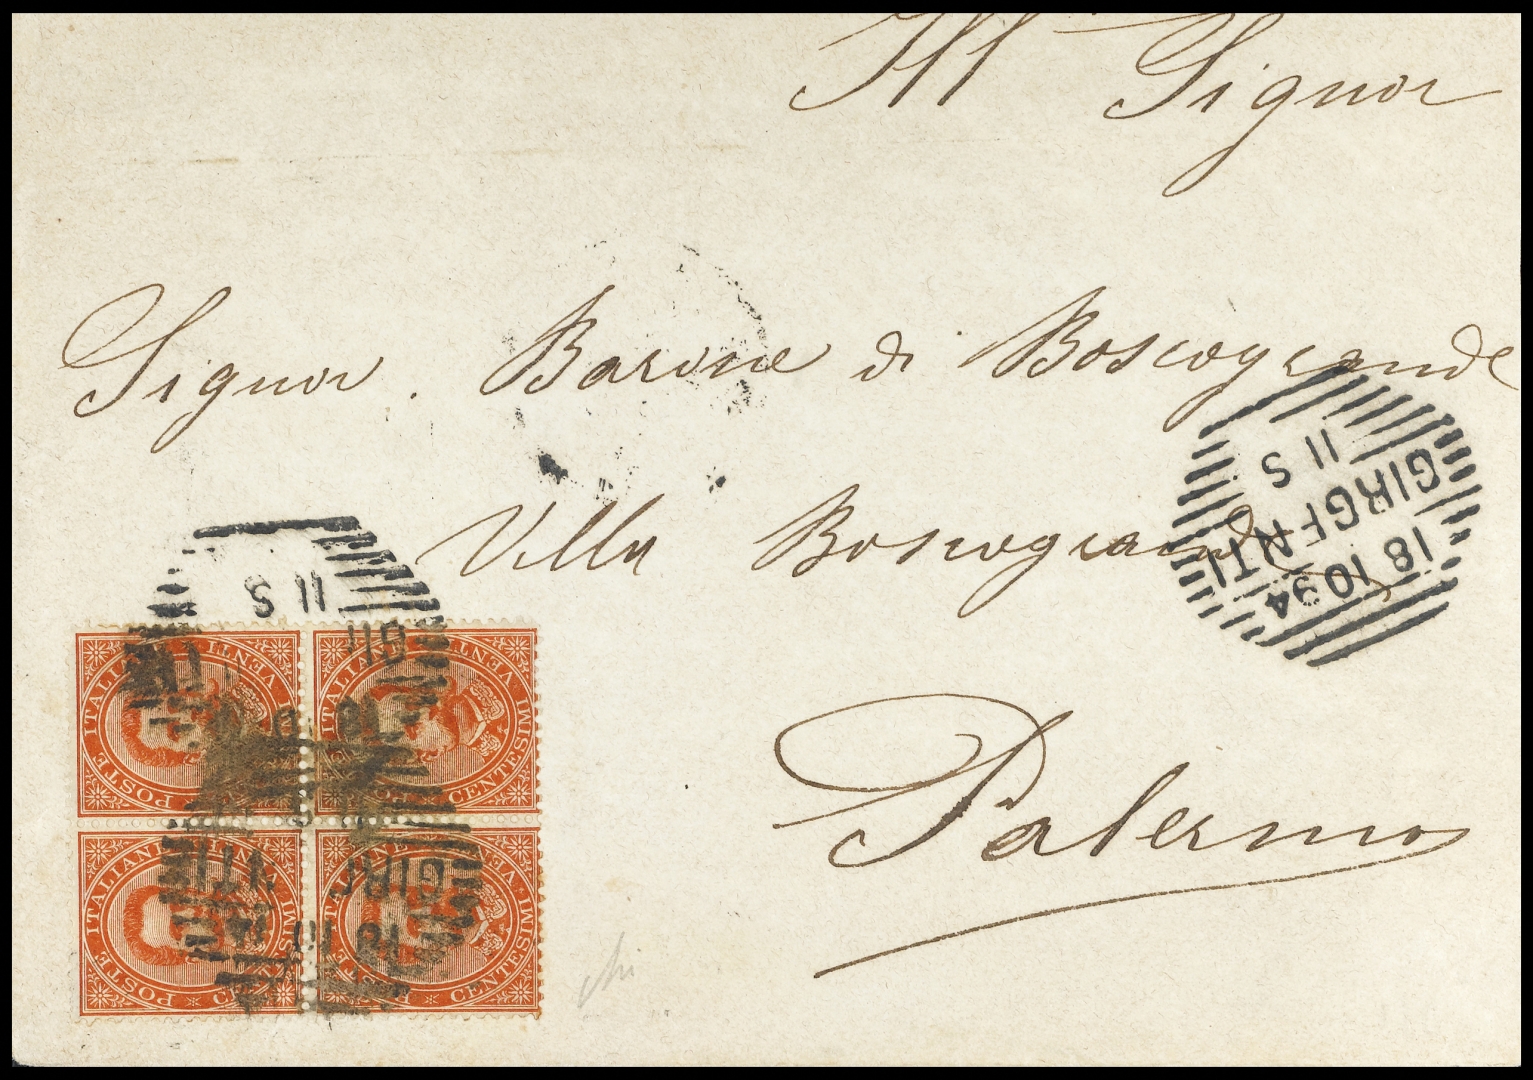 Ill Signor
Signor. Barone di Boscogrande
Villa Boscogrande
Palermo
GIRGENTI
18 10 94
11 S
11 S
GI
18 10
GIRG NTI
18 10
POSTE ITALIANE VENTI CENTESIMI
POSTE ITALIANE VENTI CENTESIMI
POSTE ITALIANE VENTI CENTESIMI
POSTE ITALIANE VENTI CENTESIMI